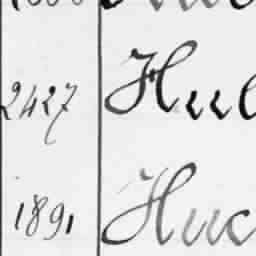 2427 Hul
1891 Huc